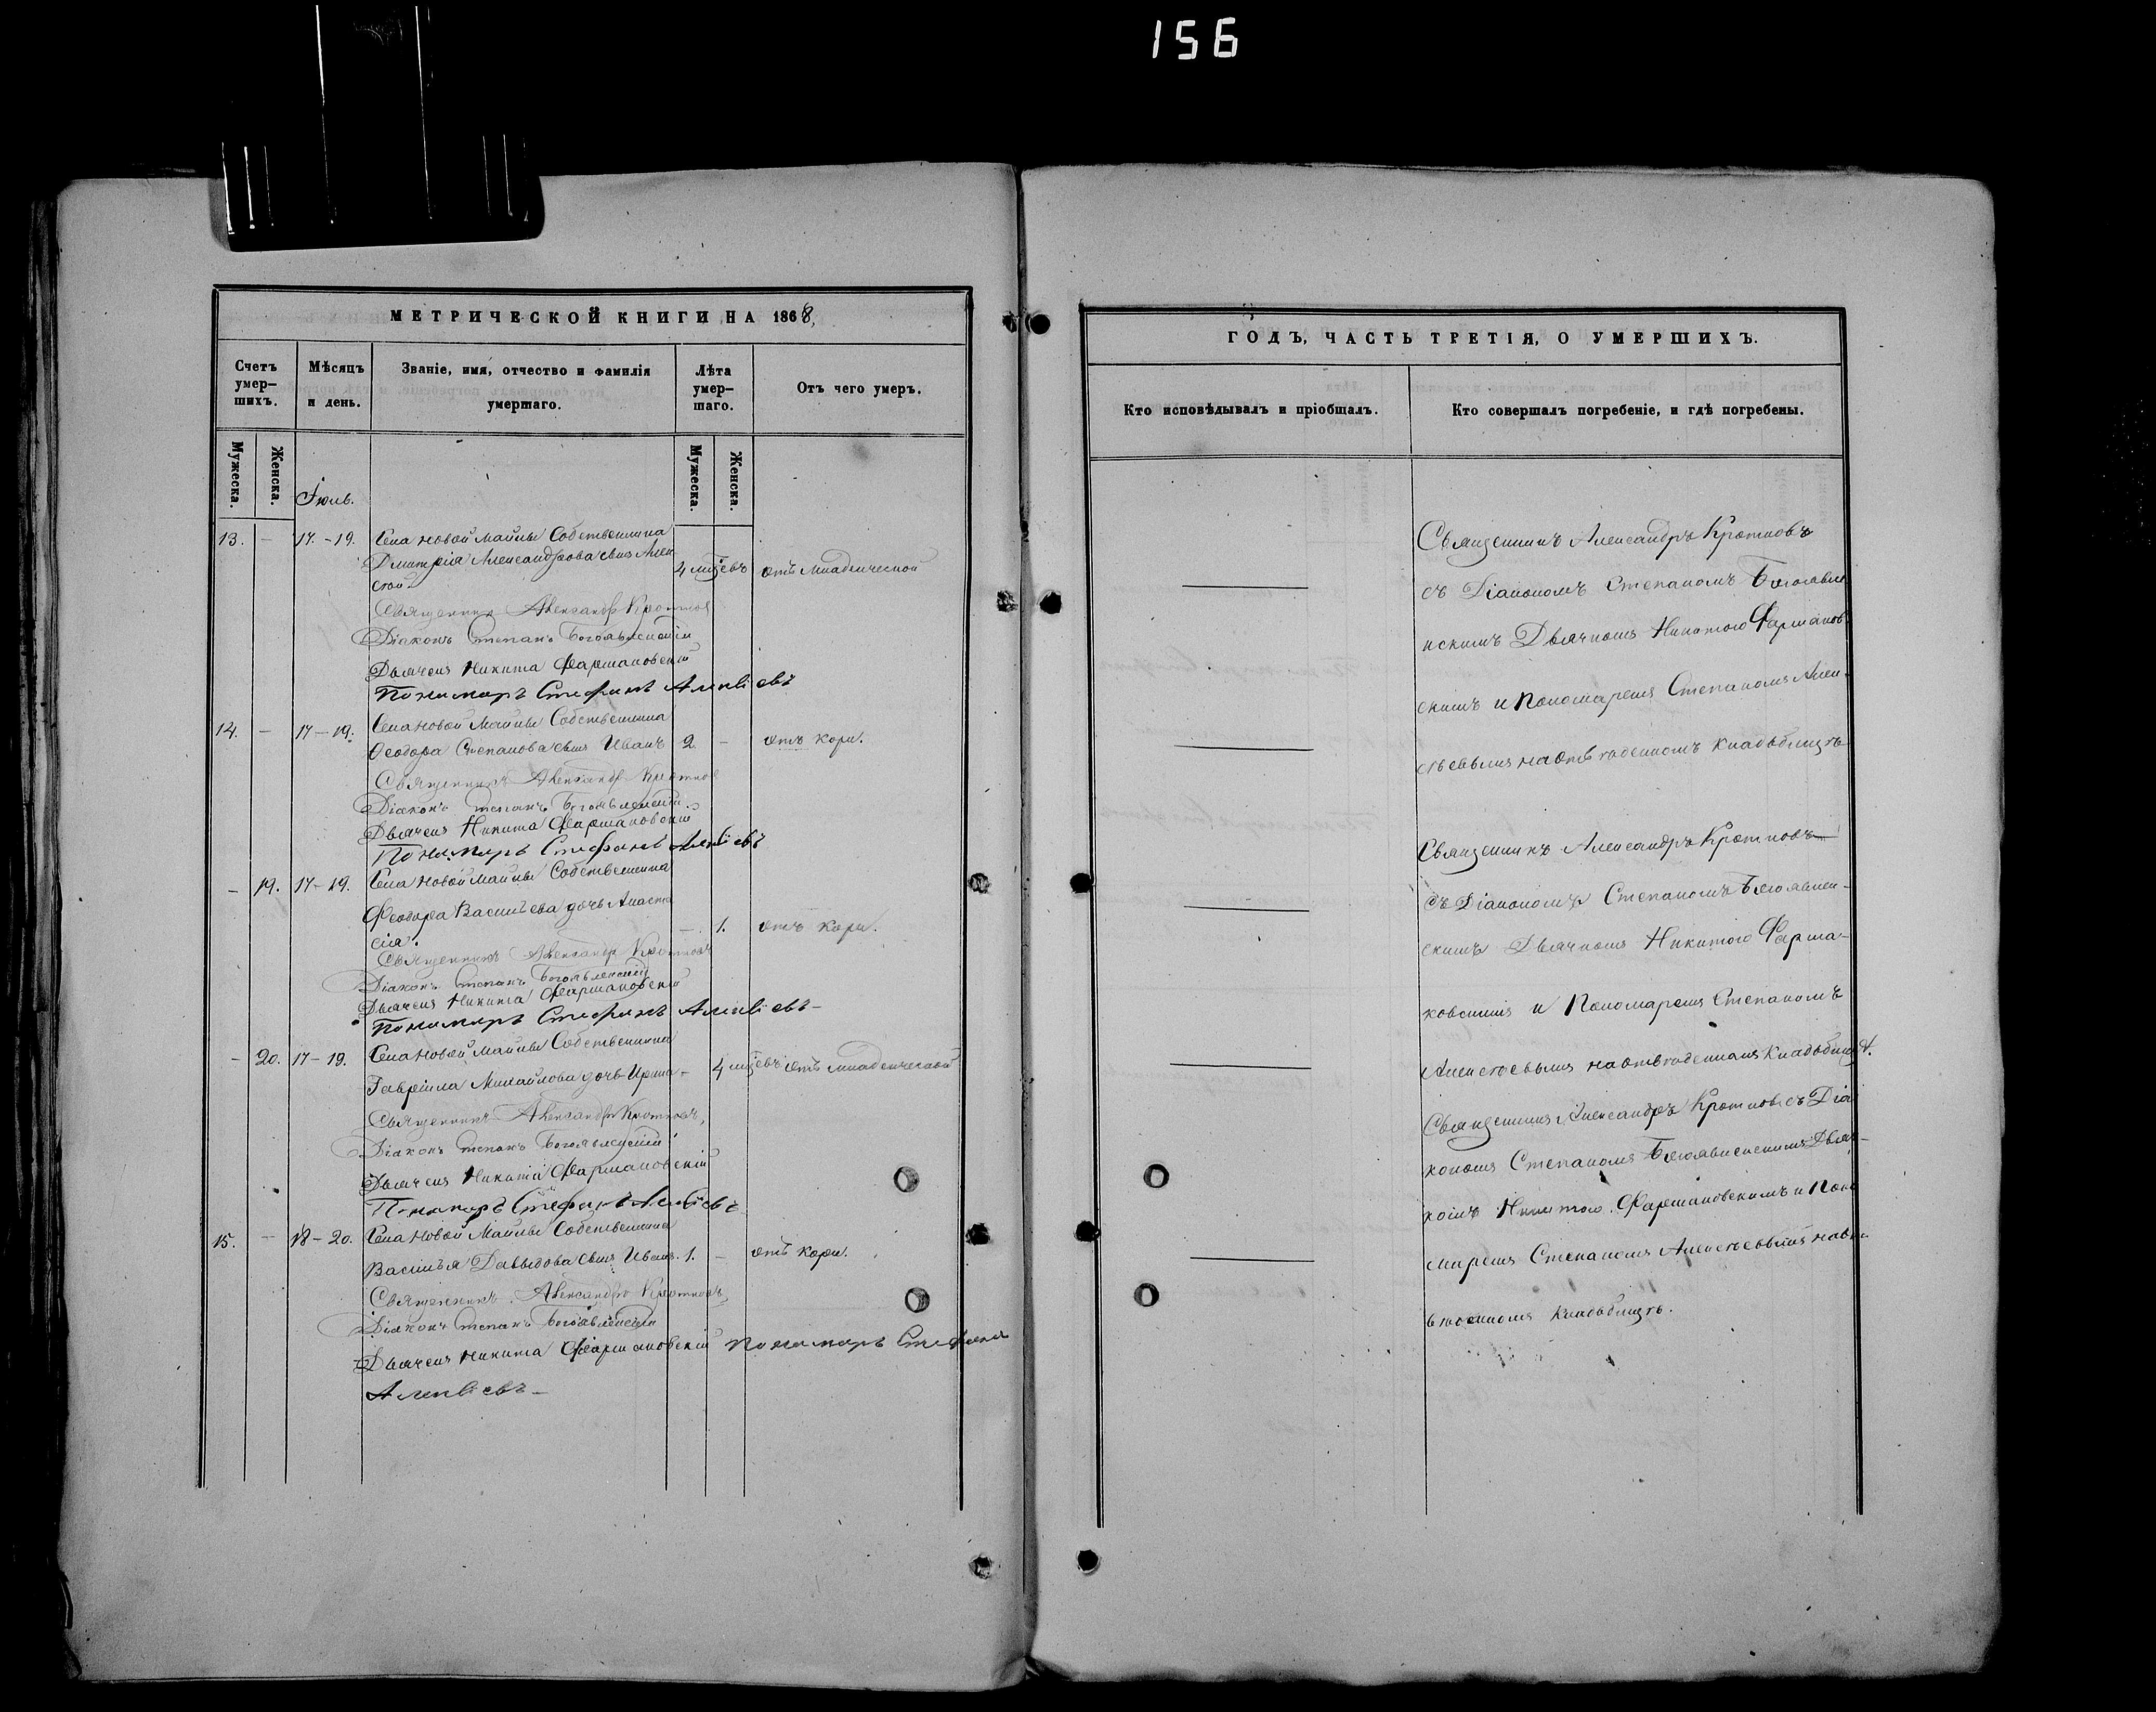 156
МЕТРИЧЕСКОЙ КНИГИ НА 1868,
Счетъ умер-шихъ.
Мѣсяцъ и день.
Званіе, имя, отчество и фамилія умершаго.
Лѣта умер-шаго.
Отъ чего умеръ.
Мужеска.
Женска.
Мужеска.
Женска.
Іюль.
13. – 17.-19. Села новой майны Собственника
Дмитрія Александрова сынъ Алек
сѣй 4 мцевъ отъ младенческой
Священникъ Александр Кротков
Діаконъ Степанъ Богоявленскій
Дьячекъ Никита Фармаковскій
Пономарь Стефанъ Алексѣевъ
14. – 17-19. Села новой Майны Собственника
Ѳеодора Степанова сынъ Иванъ 2. – отъ кори.
Священникъ Александр Кротков
Діаконъ Степанъ Богоявленскій
Дьячекъ Никита Фармаковскій
Пономарь Стефанъ Алексѣевъ
– 19. 17-19. Села Новой майны Собственника
Феодора Васильева дочь Анаста
сія. – 1. отъ кори.
Священникъ Александр Кротковъ
Діаконъ Степанъ Богоявленскій
Дьячекъ Никита Фармаковскій
Пономарь Стефанъ Алексѣевъ
– 20. 17-19. Села новой майны Собственника
Гавріила Михайлова дочь Ирина – 4 мцевъ отъ младенческой
Священникъ Александръ Кротковъ,
Діаконъ Степанъ Богоявленскій
Дьячекъ Никита Фармаковскій
Пономарь Стефанъ Алексѣевъ
15. – 18-20. Села Новой Майны Собственника
Василья Давыдова сынъ Иванъ. 1. – отъ кори.
Священникъ Александръ Кротковъ,
Діаконъ Степанъ Богоявленскій
Дьячекъ Никита Фармаковскій Пономарь Стефанъ
Алексѣевъ
ГОДЪ, ЧАСТЬ ТРЕТІЯ, О УМЕРШИХЪ.
Кто исповѣдывалъ и пріобщалъ.
Кто совершалъ погребеніе, и гдѣ погребены.
Священникъ Александръ Кротковъ
съ Діакономъ Степаномъ Богоявле
нскимъ Дьячкомъ Никитою Фармаков
скимъ и Пономаремъ Степаномъ Алек-
сѣевымъ на отведенномъ кладбищѣ
Священникъ Александръ Кротковъ
съ Діакономъ Степаномъ Богоявлен-
скимъ Дьячкомъ Никитою Фарма-
ковскимъ и Пономаремъ Степаномъ
Алексѣевымъ на отведенномъ кладбищѣ.
Священникъ Александръ Кротковъ съ Діа
кономъ Степаномъ Богоявленскимъ Дьяч-
комъ Никитою Фармаковскимъ и Поно
маремъ Степаномъ Алексѣевымъ на от
кладбищѣ.